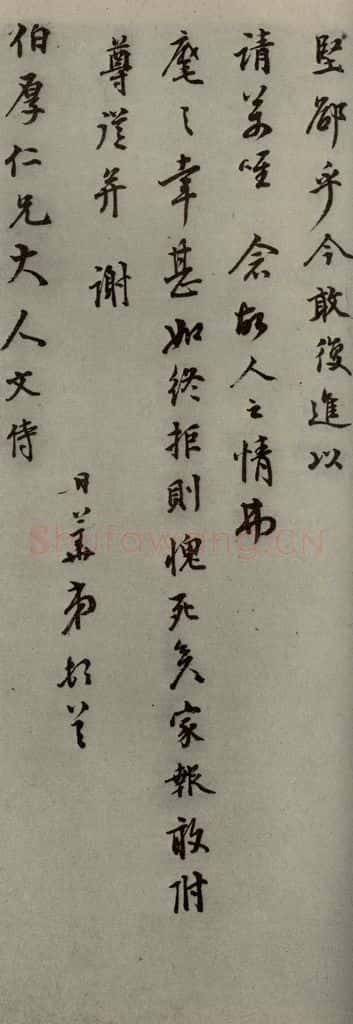 堅卻乎今敢復進以
請萬唯 念故人之情弗
麾之幸甚如終拒則愧死矣家報敢附
尊從并 謝
日華弟頓首
伯厚仁兄大人文侍
Shufawang.CN